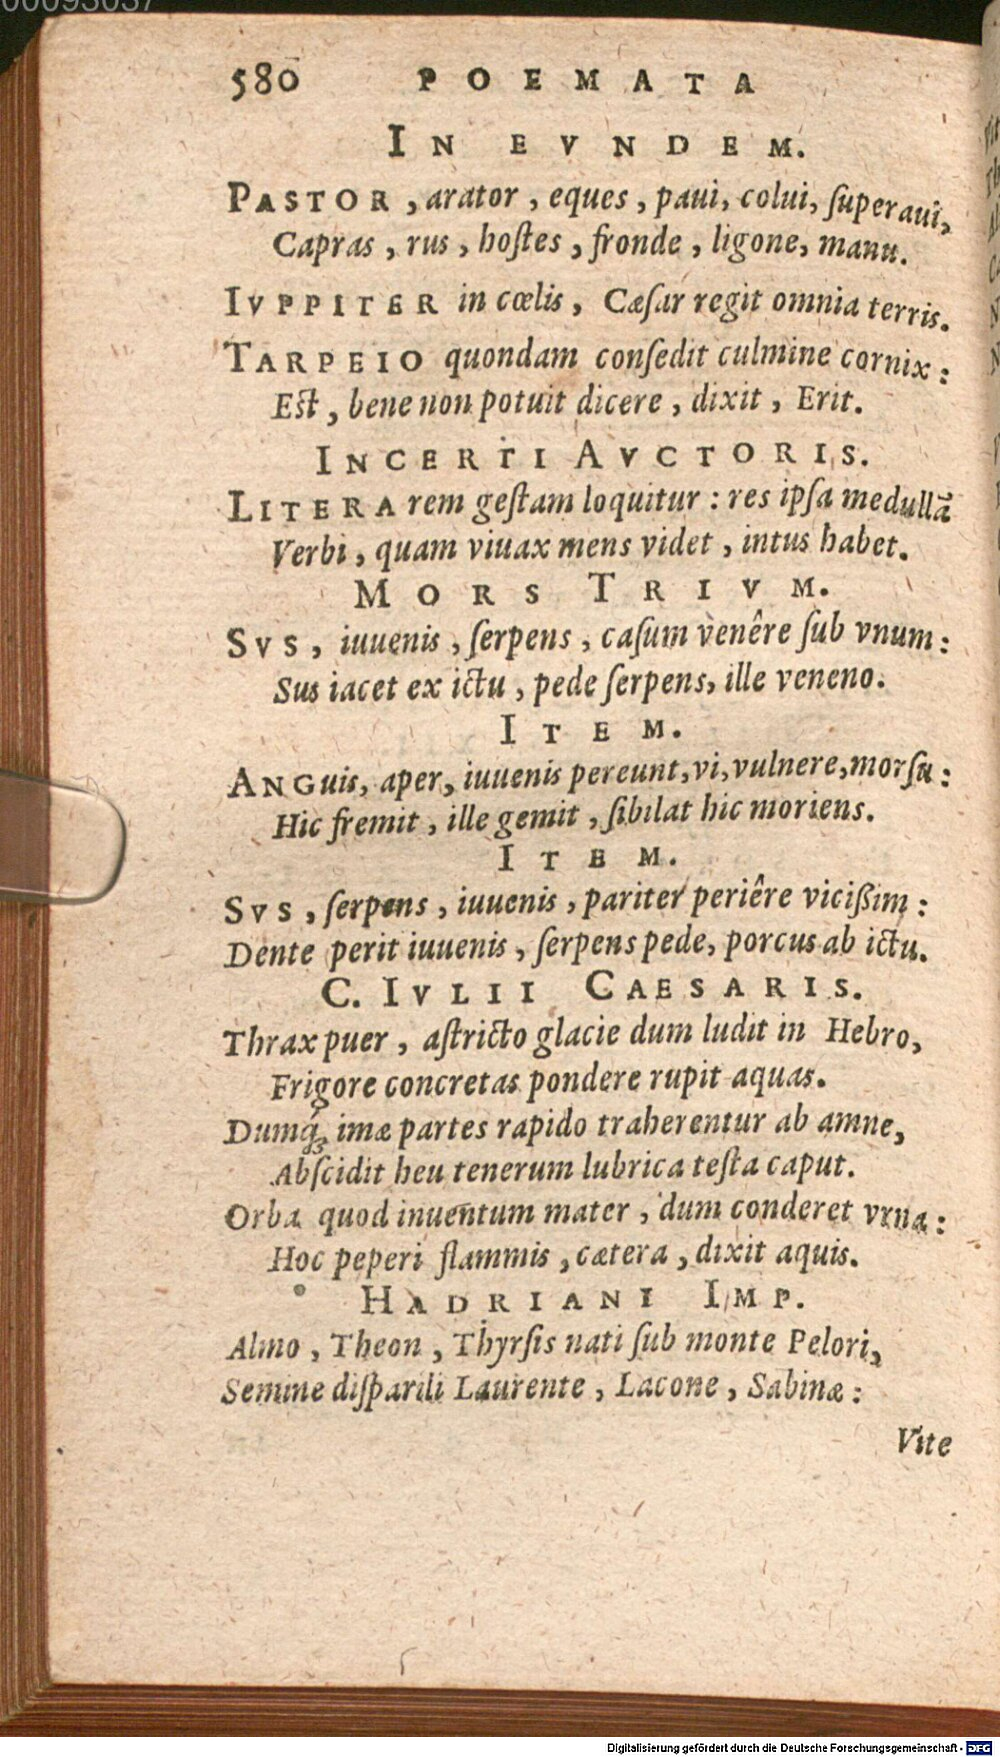 00093037
580 POEMATA
IN EVNDEM.
PASTOR, arator, eques, paui, colui, ſuperaui,
Capras, rus, hoſtes, fronde, ligone, manu.
IVPPITER in cœlis, Cæſar regit omnia terris.
TARPEIO quondam conſedit culmine cornix:
Eſt, bene non potuit dicere, dixit, Erit.
INCERTI AVCTORIS.
LITERA rem geſtam loquitur: res ipſa medullã
Verbi, quam viuax mens videt, intus habet.
MORS TRIVM.
SVS, iuuenis, ſerpens, caſum venêre ſub vnum:
Sus iacet ex ictu, pede ſerpens, ille veneno.
ITEM.
ANGuis, aper, iuuenis pereunt, vi, vulnere, morſu:
Hic fremit, ille gemit, ſibilat hic moriens.
ITEM.
SVS, ſerpens, iuuenis, pariter periêre vicißim:
Dente perit iuuenis, ſerpens pede, porcus ab ictu.
C. IVLII CAESARIS.
Thrax puer, aſtricto glacie dum ludit in Hebro,
Frigore concretas pondere rupit aquas.
Dumq́; imæ partes rapido traherentur ab amne,
Abſcidit heu tenerum lubrica teſta caput.
Orba quod inuentum mater, dum conderet vrna:
Hoc peperi flammis, cætera, dixit aquis.
HADRIANI IMP.
Almo, Theon, Thyrſis nati ſub monte Pelori,
Semine diſparili Laurente, Lacone, Sabinæ:
Vite
Digitalisierung gefördert durch die Deutsche Forschungsgemeinschaft - DFG